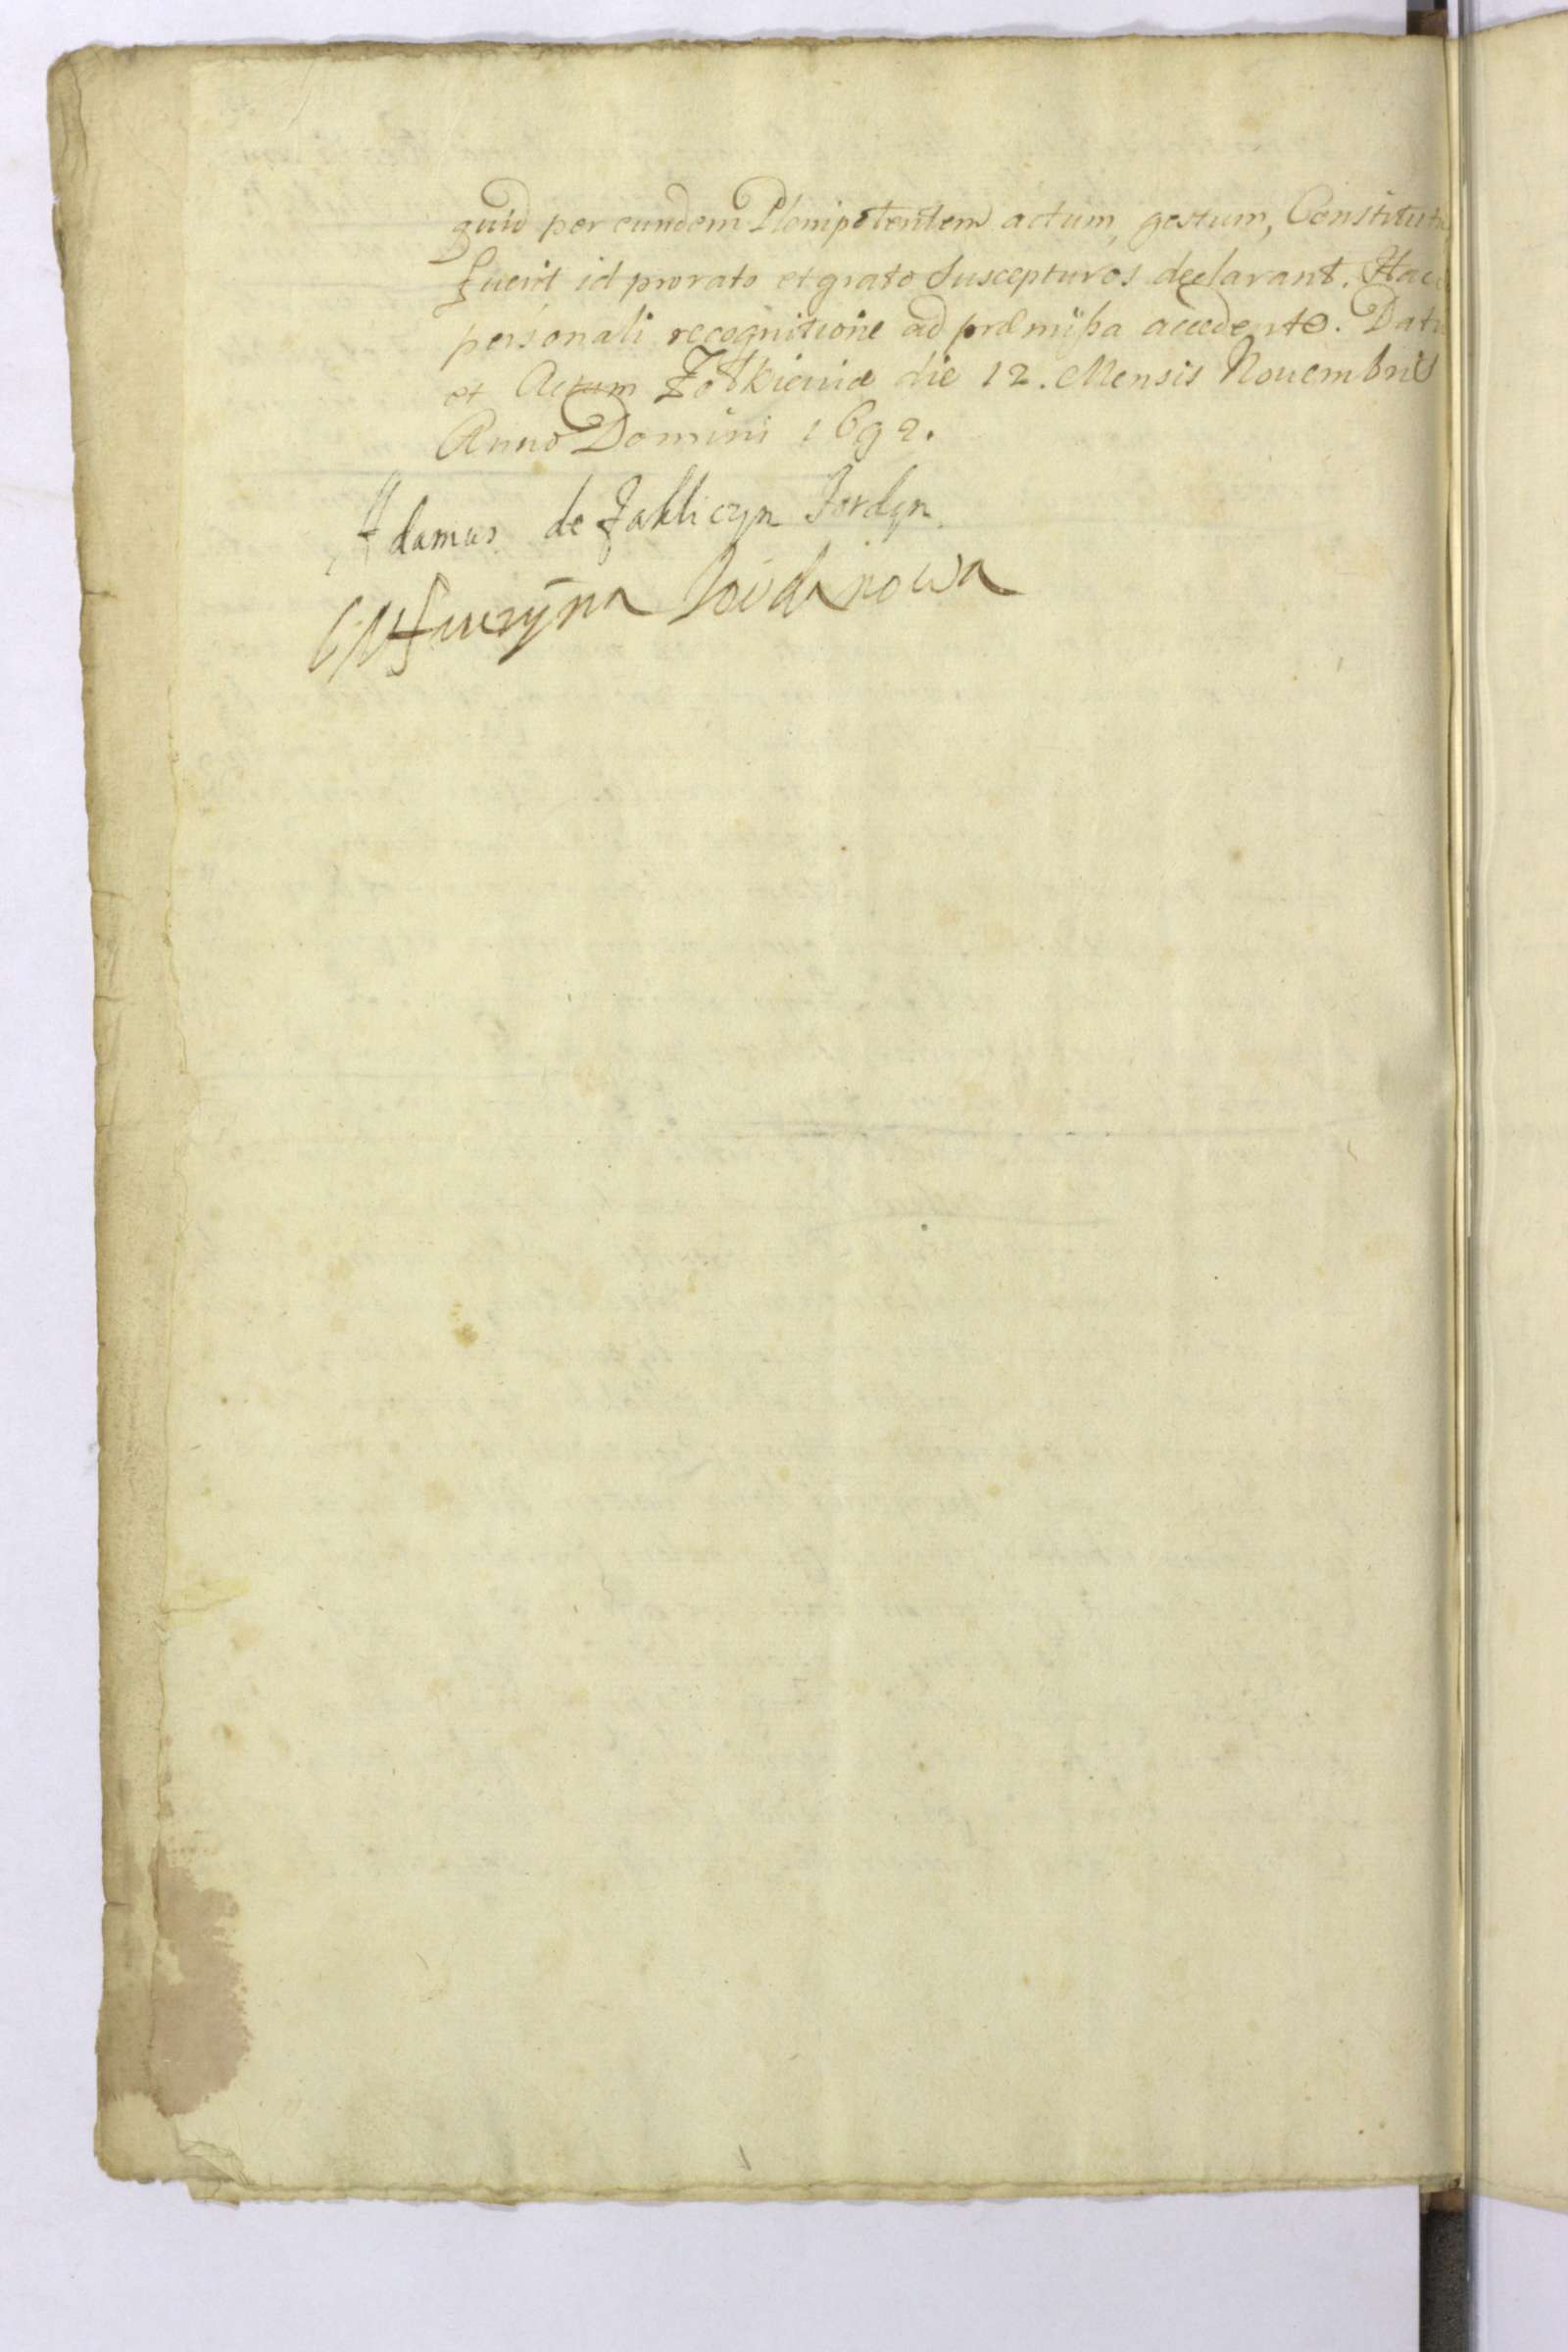 quid per eundem Plenipotentem actum, gestum, Constitutu
fuerit id pro rato et grato suscepturos declarant. Hac
personali recognitione ad præmissa accedente. Dat
et Actum Zołkieviæ die 12. Mensis Novembris
Anno Domini 1692.
Adamus de Zakliczyn Jordan
Jordanowa